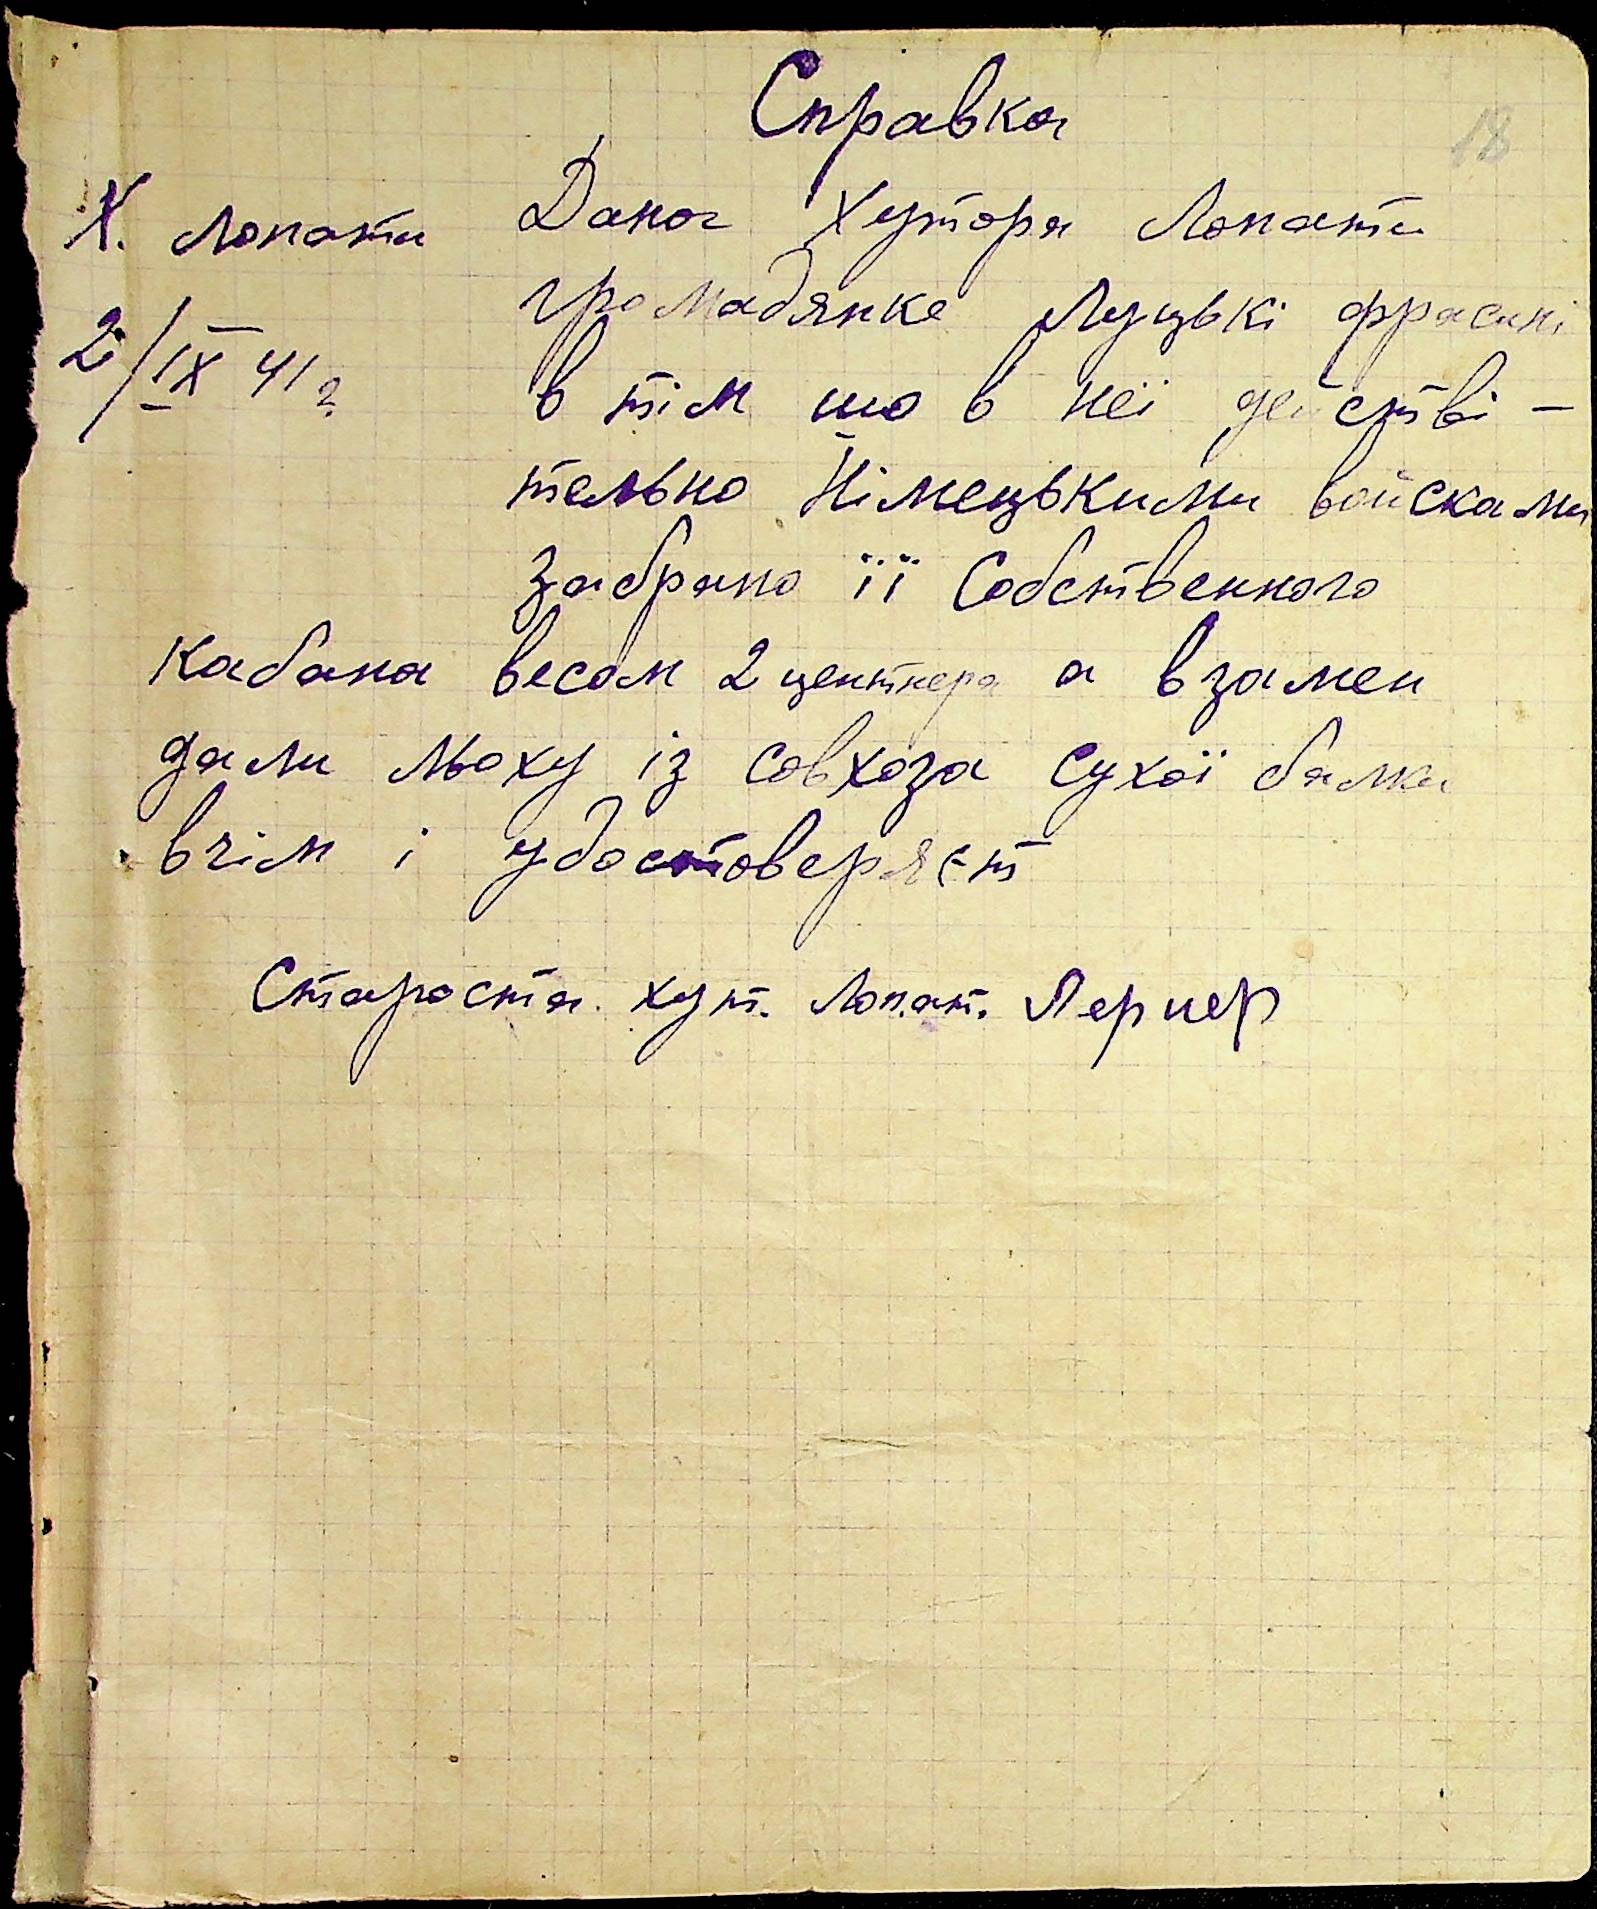 Справка
18
Х. Лопати
2/IX 41 г.
Дана Хутора Лопати
громадянке Луцькі Фрасині
в тім шо в неї действі-
тельно Німецькими войсками
забрано її Собственного
кабана весом 2 центнера а взамен
дали льоху із совхоза Сухої балки
вчім і удостоверяєт
Староста хут. Лопат. Лернер